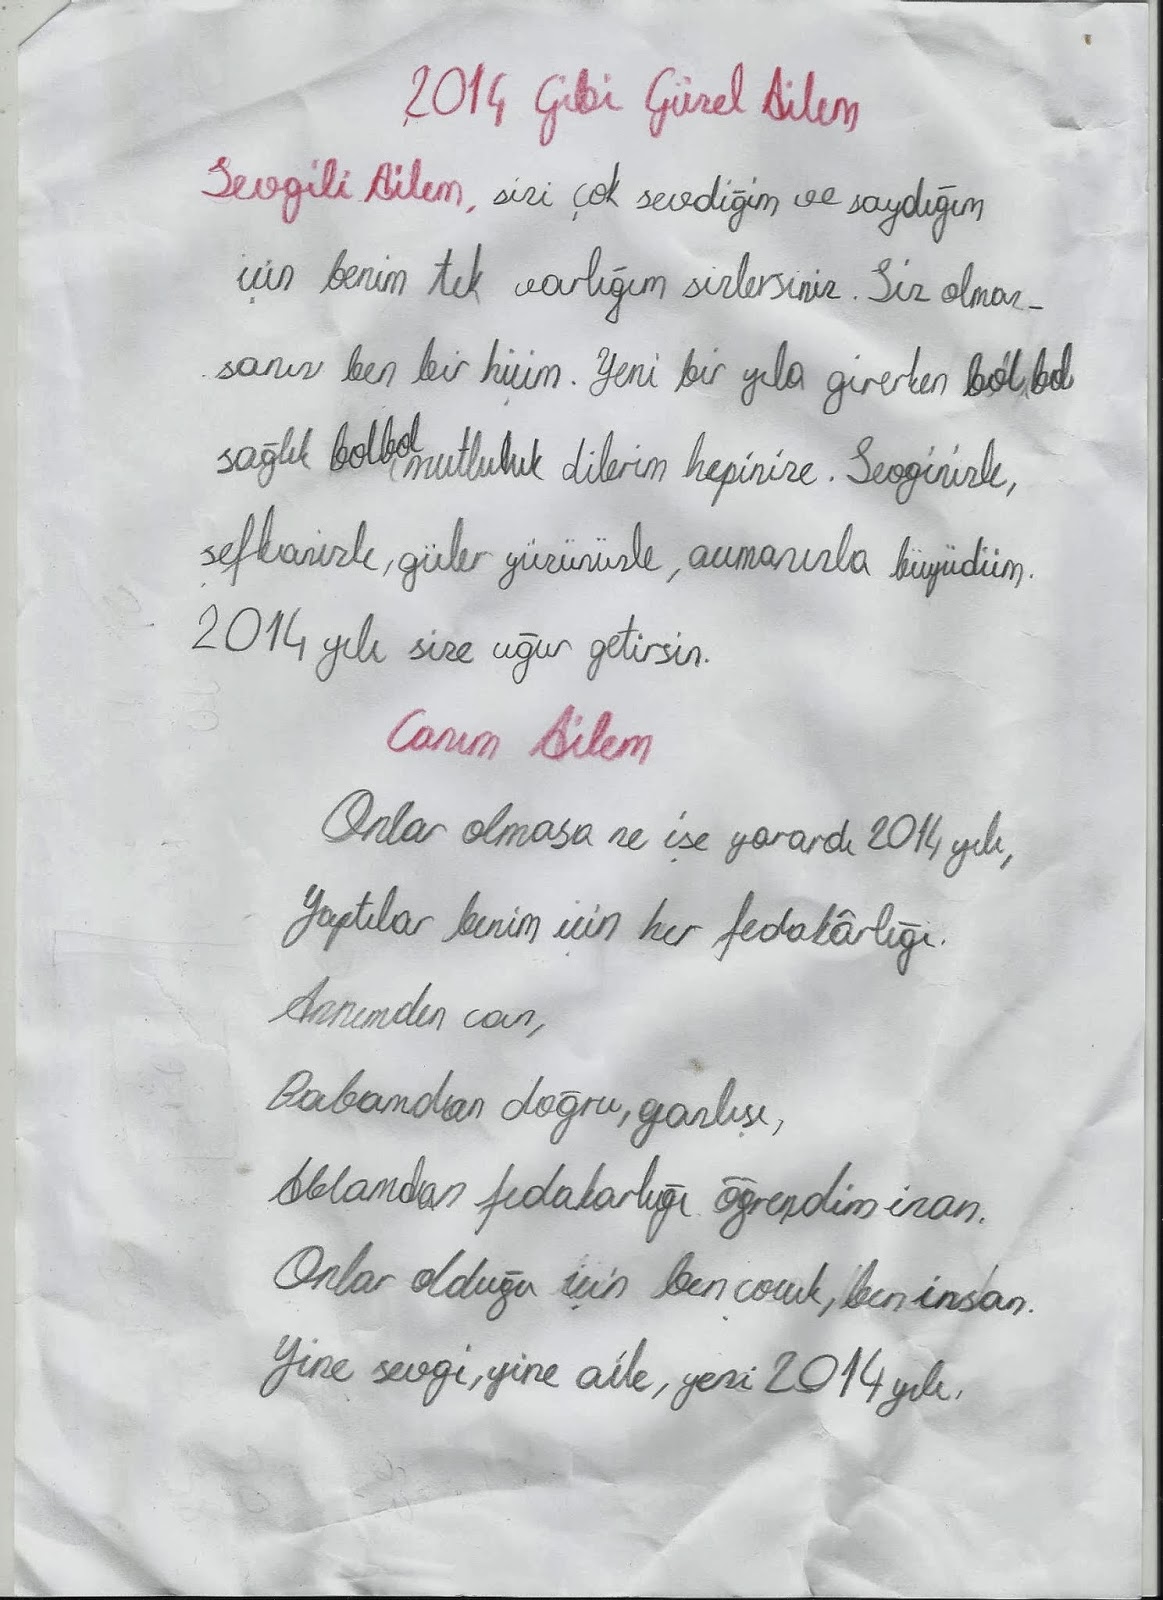 2014 Gibi Güzel Ailem
Sevgili Ailem, sizi çok sevdiğim ve saydığım
için benim tek varlığım sizlersiniz. Siz olmaz-
sanız ben bir hiçim. Yeni bir yıla girerken bol bol
sağlık bolbol mutluluk dilerim hepinize. Sevginizle,
şefkanizle, güler yüzünüzle, acımanızla büyüdüm.
2014 yılı size uğur getirsin.
Canım Ailem
Onlar olmasa ne işe yarardı 2014 yılı,
Yaptılar benim için her fedakârlığı.
Annemden can,
Babamdan doğru, yanlışı,
Ablamdan fedakarlığı öğrendim inan.
Onlar olduğu için ben çocuk, ben insan.
Yine sevgi, yine aile, yeni 2014 yılı.